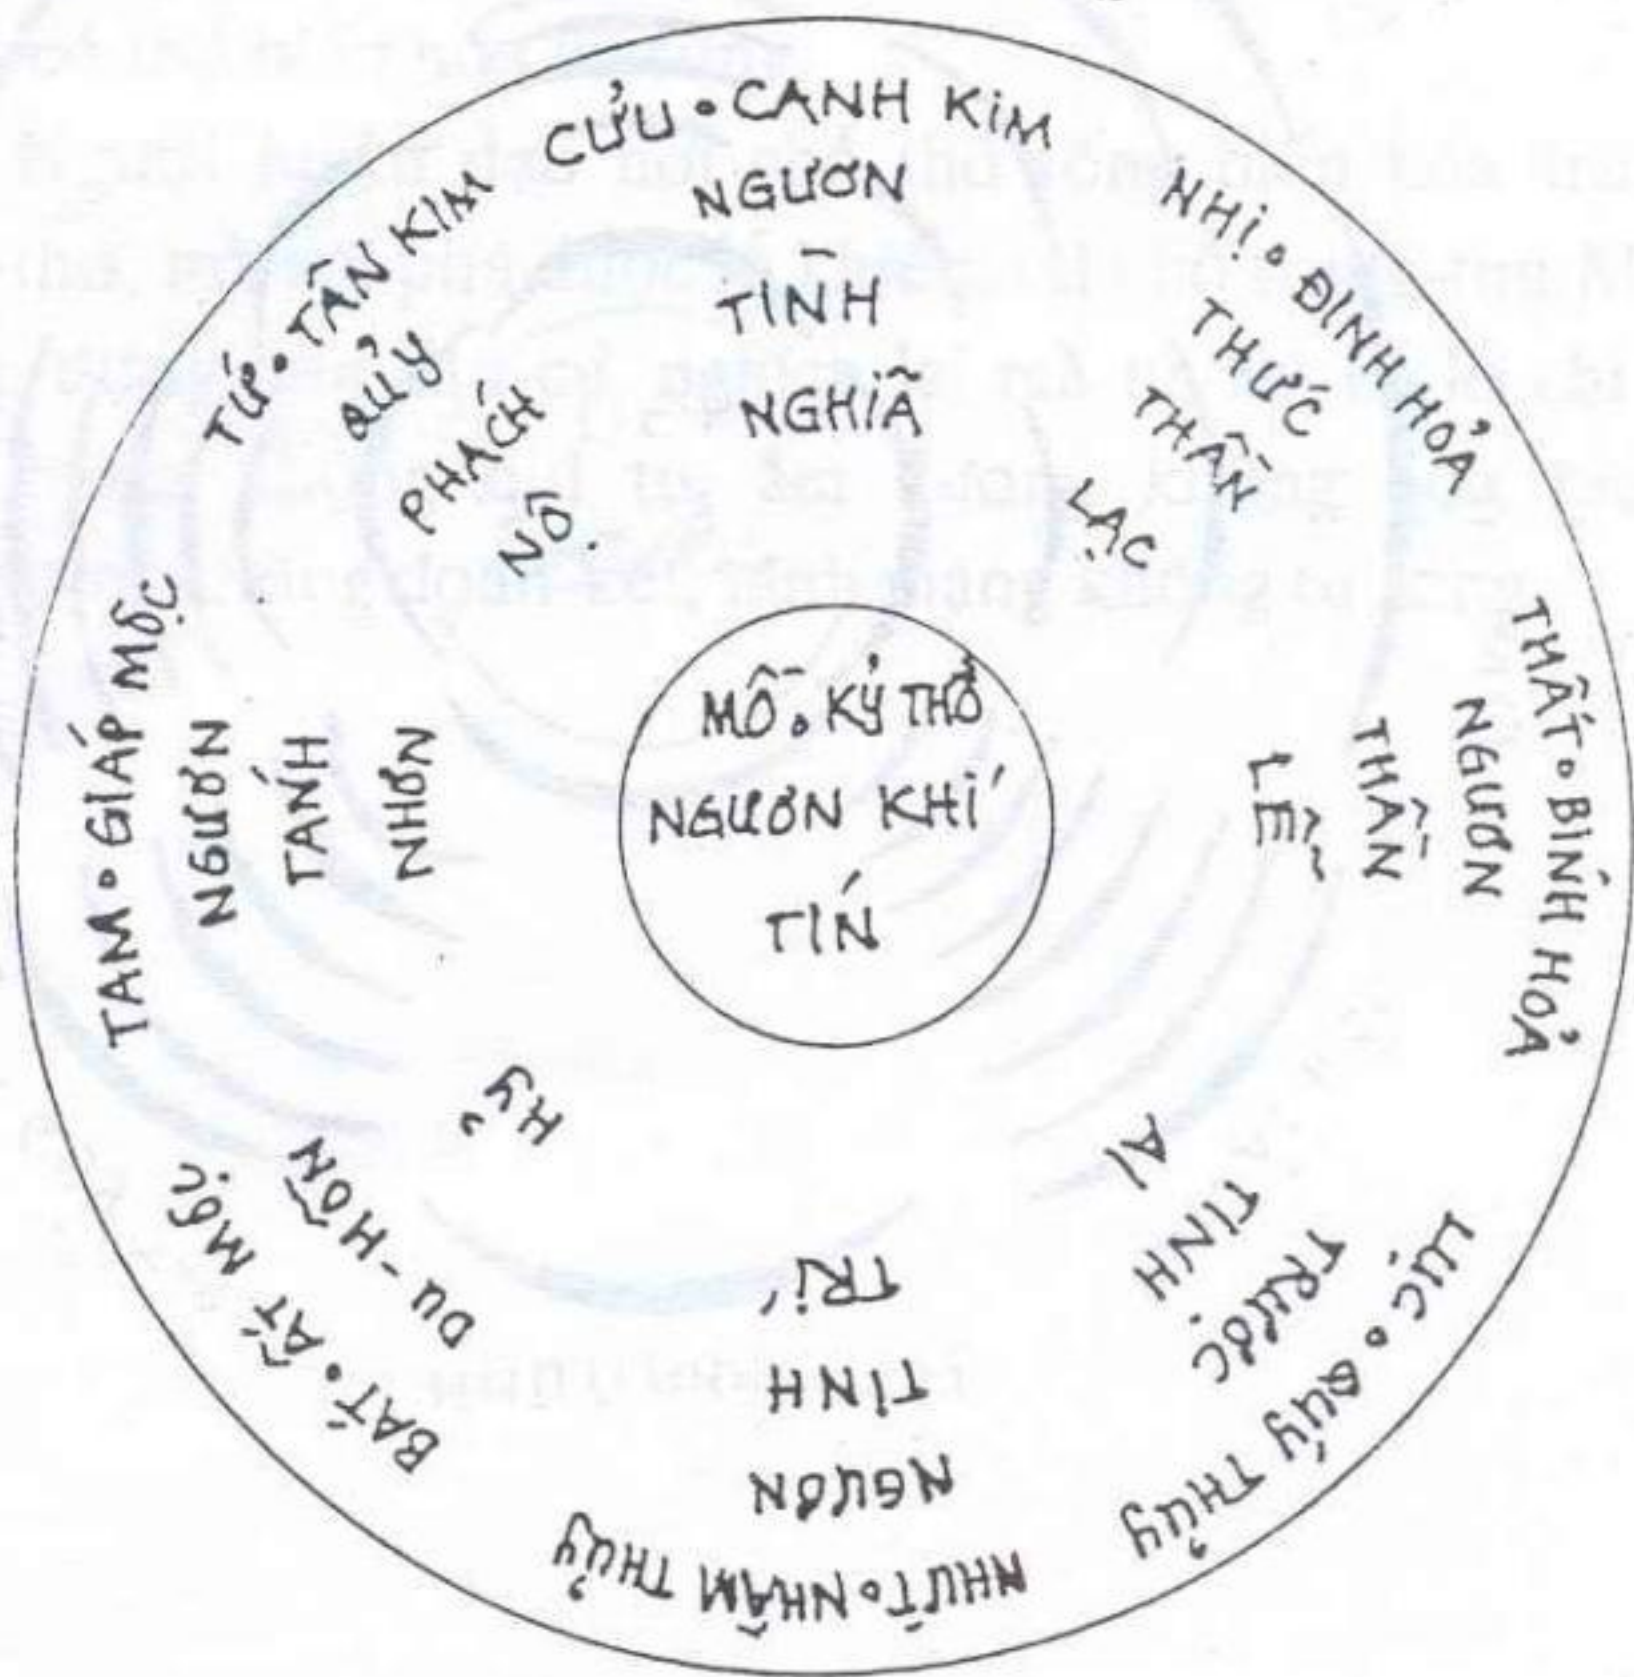 CỬU ∘ CANH KIM
NGƯƠN
TÌNH
NGHĨA
NHỊ ∘ ĐINH HOẢ
THỨC
THẦN
LẠC
THẤT ∘ BÍNH HOẢ
NGƯƠN
THẦN
LỄ
LỤC ∘ QUÝ THỦY
TRƯỢC
TINH
AI
NHỨT ∘ NHÂM THỦY
NGƯƠN
TINH
TRÍ
BÁT ∘ ẤT MỘC
DU - HỒN
HỶ
TAM ∘ GIÁP MỘC
NGƯƠN
TÁNH
NHƠN
TỨ ∘ TÂN KIM
QUỶ
PHÁCH
NỘ
MỒ ∘ KỶ THỔ
NGƯƠN KHÍ
TÍN